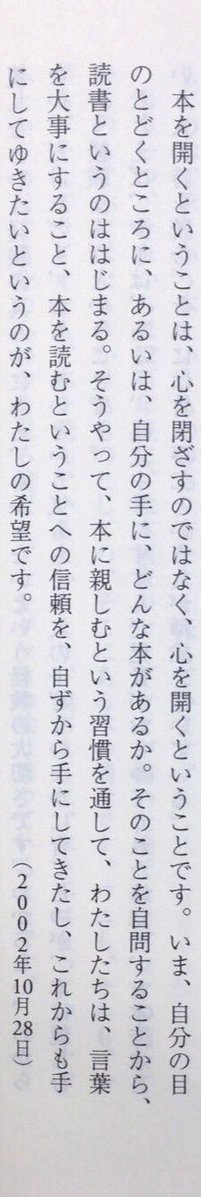 本を開くということは、心を閉ざすのではなく、心を開くということです。いま、自分の目
のとどくところに、あるいは、自分の手に、どんな本があるか。そのことを自問することから、
読書というのははじまる。そうやって、本に親しむという習慣を通して、わたしたちは、言葉
を大事にすること、本を読むということへの信頼を、自ずから手にしてきたし、これからも手
にしてゆきたいというのが、わたしの希望です。　（2002年10月28日）